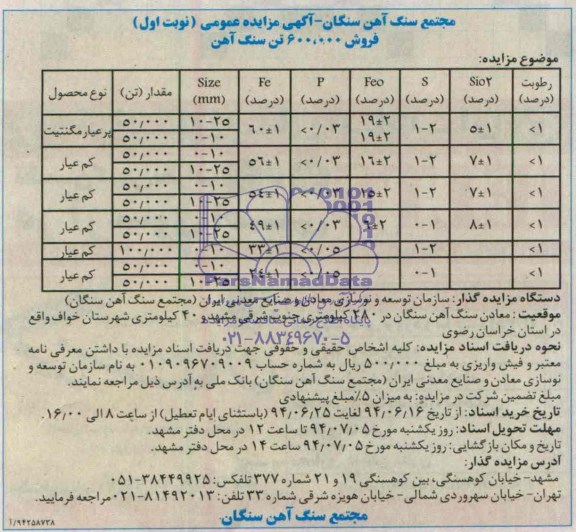 مجتمع سنگ آهن سنگان-آگهی مزایده عمومی (نوبت اول)
فروش ۶۰۰,۰۰۰ تن سنگ آهن
موضوع مزایده:
نوع محصول مقدار (تن) Size (mm) Fe (درصد) P (درصد) Feo (درصد) S (درصد) Sio۲ (درصد) رطوبت (درصد)
پرعیار مگنتیت ۵۰٫۰۰۰ ۱۰-۲۵ ۶۰±۱ <۰/۰۳ ۱۹±۲ ۱-۲ ۵±۱ <۱
۵۰٫۰۰۰ ۰-۱۰ ۱۹±۲
کم عیار ۵۰٫۰۰۰ ۰-۱۰ ۵۶±۱ <۰/۰۳ ۱۶±۲ ۱-۲ ۷±۱ <۱
۵۰٫۰۰۰ ۱۰-۲۵
کم عیار ۵۰٫۰۰۰ ۰-۱۰ ۵۴±۱ <۰/۰۳ ۱-۲ ۷±۱ <۱
۵۰٫۰۰۰ ۱۰-۲۵
کم عیار ۵۰٫۰۰۰ ۰-۱۰ ۴۹±۱ <۰/۰۳ ۰-۱ ۸±۱ <۱
۵۰٫۰۰۰ ۱۰-۲۵
کم عیار ۱۰۰٫۰۰۰ ۳۳±۱ <۰/۰۵ ۱-۲ <۱
کم عیار ۵۰٫۰۰۰ ۰-۱۰ ۲۴±۱ <۰/۰۵ ۰-۱ <۱
۵۰٫۰۰۰
ParsNamadData
دستگاه مزایده گذار: سازمان توسعه و نوسازی معادن و صنایع معدنی ایران (مجتمع سنگ آهن سنگان)
موقعیت: معادن سنگ آهن سنگان در ۲۸۰ کیلومتری جنوب شرقی مشهد و ۴۰ کیلومتری شهرستان خواف واقع
در استان خراسان رضوی
۰۲۱-۸۸۳۴۹۶۷۰-۵
نحوه دریافت اسناد مزایده: کلیه اشخاص حقیقی و حقوقی جهت دریافت اسناد مزایده با داشتن معرفی نامه
معتبر و فیش واریزی به مبلغ ۵۰۰٫۰۰۰ ریال به شماره حساب ۰۱۰۹۰۹۶۷۰۹۰۰۹ به نام سازمان توسعه و
نوسازی معادن و صنایع معدنی ایران (مجتمع سنگ آهن سنگان) بانک ملی به آدرس ذیل مراجعه نمایند.
مبلغ تضمین شرکت در مزایده: به میزان ۵٪ مبلغ پیشنهادی
تاریخ خرید اسناد: از تاریخ ۹۴٫۰۶٫۱۶ لغایت ۹۴٫۰۶٫۲۵ (باستثنای ایام تعطیل) از ساعت ۸ الی ۱۶٫۰۰.
مهلت تحویل اسناد: روز یکشنبه مورخ ۹۴٫۰۷٫۰۵ تا ساعت ۱۲ در محل دفتر مشهد.
تاریخ و مکان بازگشایی: روز یکشنبه مورخ ۹۴٫۰۷٫۰۵ ساعت ۱۴ در محل دفتر مشهد.
آدرس مزایده گذار:
مشهد- خیابان کوهسنگی، بین کوهسنگی ۱۹ و ۲۱ شماره ۳۷۷ تلفکس: ۳۸۴۴۹۹۲۵-۰۵۱
تهران- خیابان سهروردی شمالی- خیابان هویزه شرقی شماره ۳۳ تلفن: ۸۱۴۹۲۰۱۳-۰۲۱ مراجعه فرمایید.
مجتمع سنگ آهن سنگان
۹۴۲۵۸۷۳۸/آ